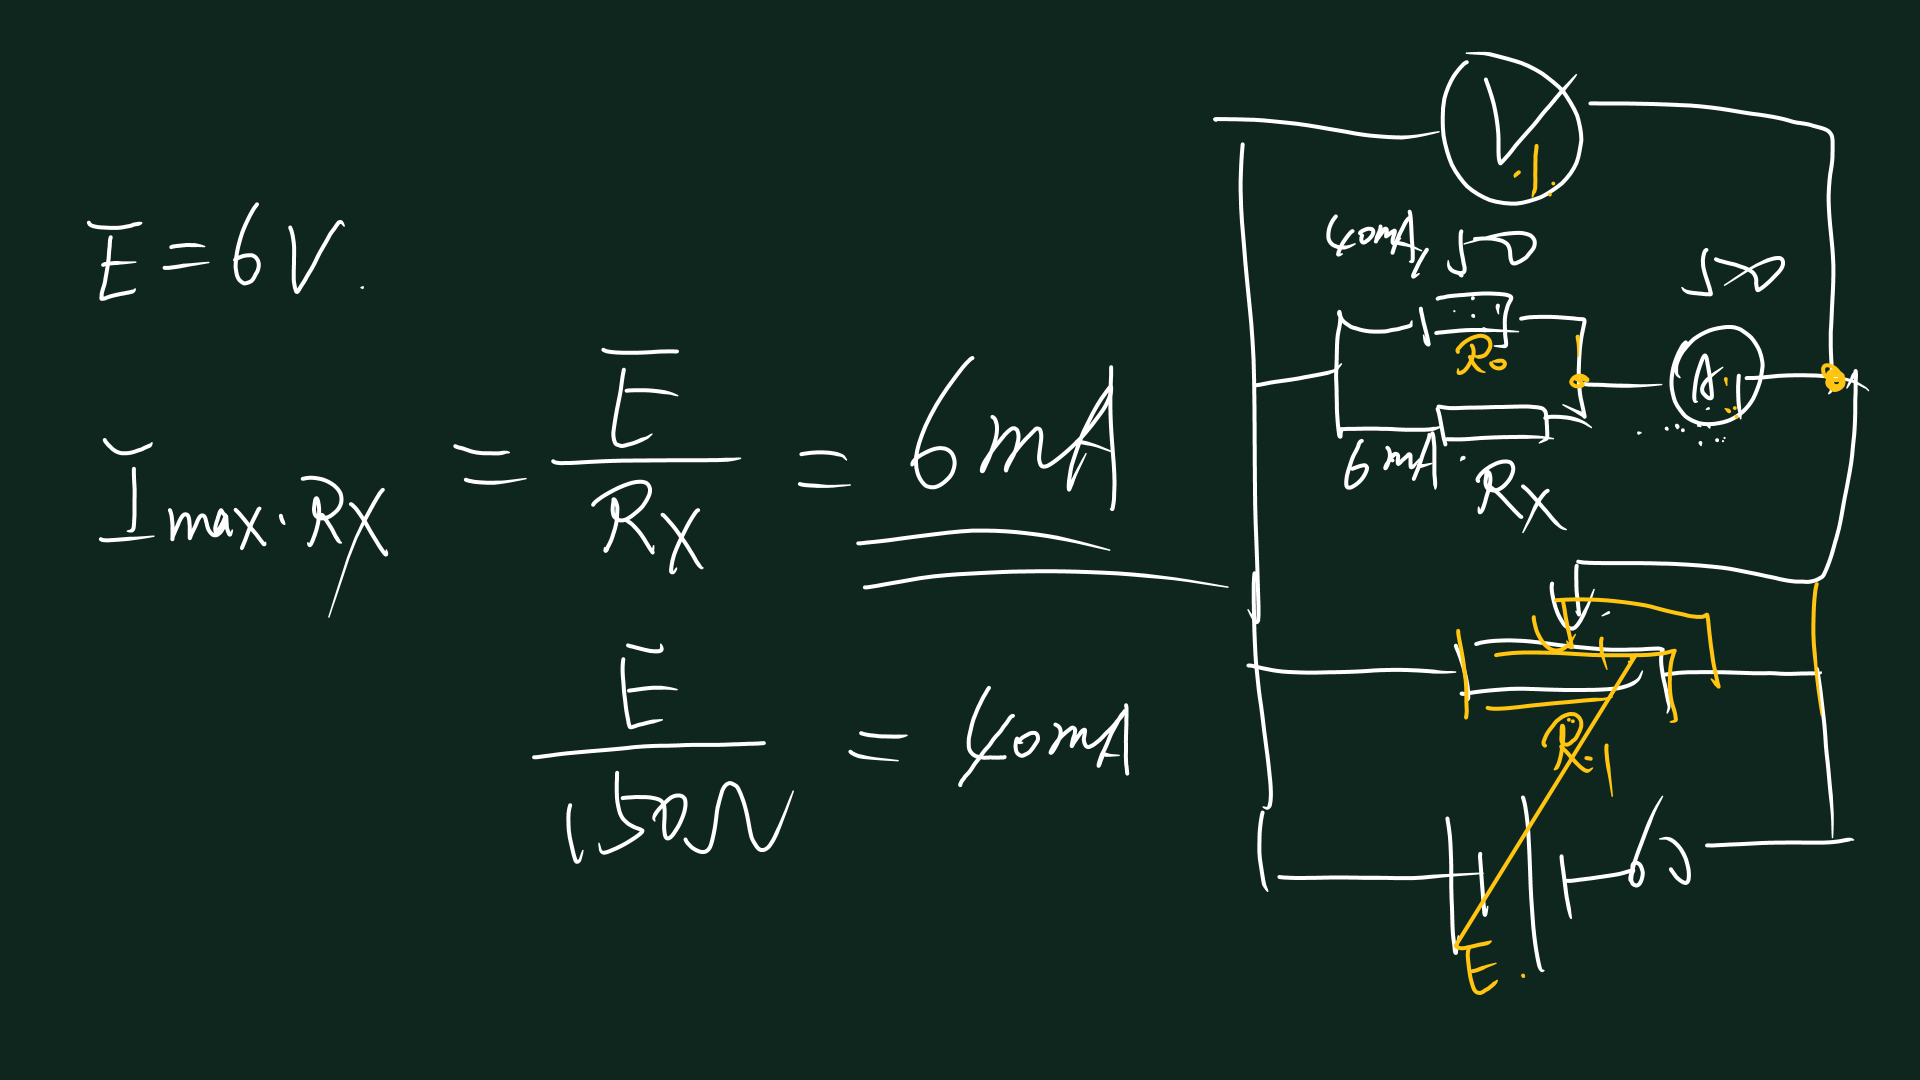 E = 6V.
I max·Rx = E/Rx = 6mA
E/150Ω = 40mA
V1
40mA, 150
R0
50
A1
6mA
Rx
R1
E